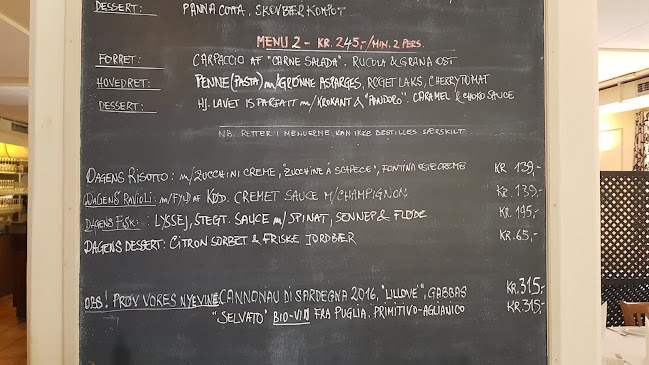 DESSERT: PANNA COTTA, SKOVBÆR KOMPOT
MENU 2 - KR. 245,-/MIN. 2 PERS.
FORRET: CARPACCIO AF "CARNE SALADA". RUCOLA & GRANA OST
HOVEDRET: PENNE (PASTA) m/GRØNNE ASPARGES, RØGET LAKS, CHERRYTOMAT
DESSERT: HJ. LAVET IS PARFAIT m/KROKANT & "PANDORO". CARAMEL & CHOKO SAUCE
NB. RETTER I MENUERNE KAN IKKE BESTILLES SÆRSKILT.
DAGENS RISOTTO: m/ZUCCHINI CREME, "ZUCCHINE A SCAPECE", FONTINA OSTECREME KR 139,-
DAGENS RAVIOLI: m/FYLD AF KØD. CREMET SAUCE M/CHAMPIGNON KR. 139,-
DAGENS FISK: LYSSEJ, STEGT. SAUCE m/SPINAT, SENNEP & FLØDE KR. 195,-
DAGENS DESSERT: CITRON SORBET & FRISKE JORDBÆR KR. 65,-
OBS! PRØV VORES NYE VINE CANNONAU DI SARDEGNA 2016, "LILLOVÉ", GABBAS KR. 315,-
"SELVATO" BIO-VIN FRA PUGLIA. PRIMITIVO-AGLIANICO KR. 315,-